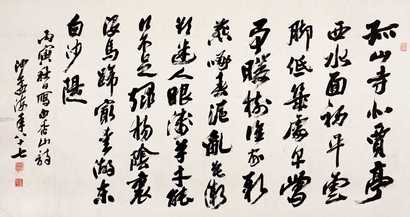 孤山寺北賈亭
西水面初平雲
脚低幾處早鶯
爭暖樹誰家新
燕啄春泥亂花漸
欲迷人眼淺草才能
行不足綠楊陰裏
沒馬蹄最愛湖東
白沙堤
丙寅秋日寫白香山詩
沙孟海年八十七